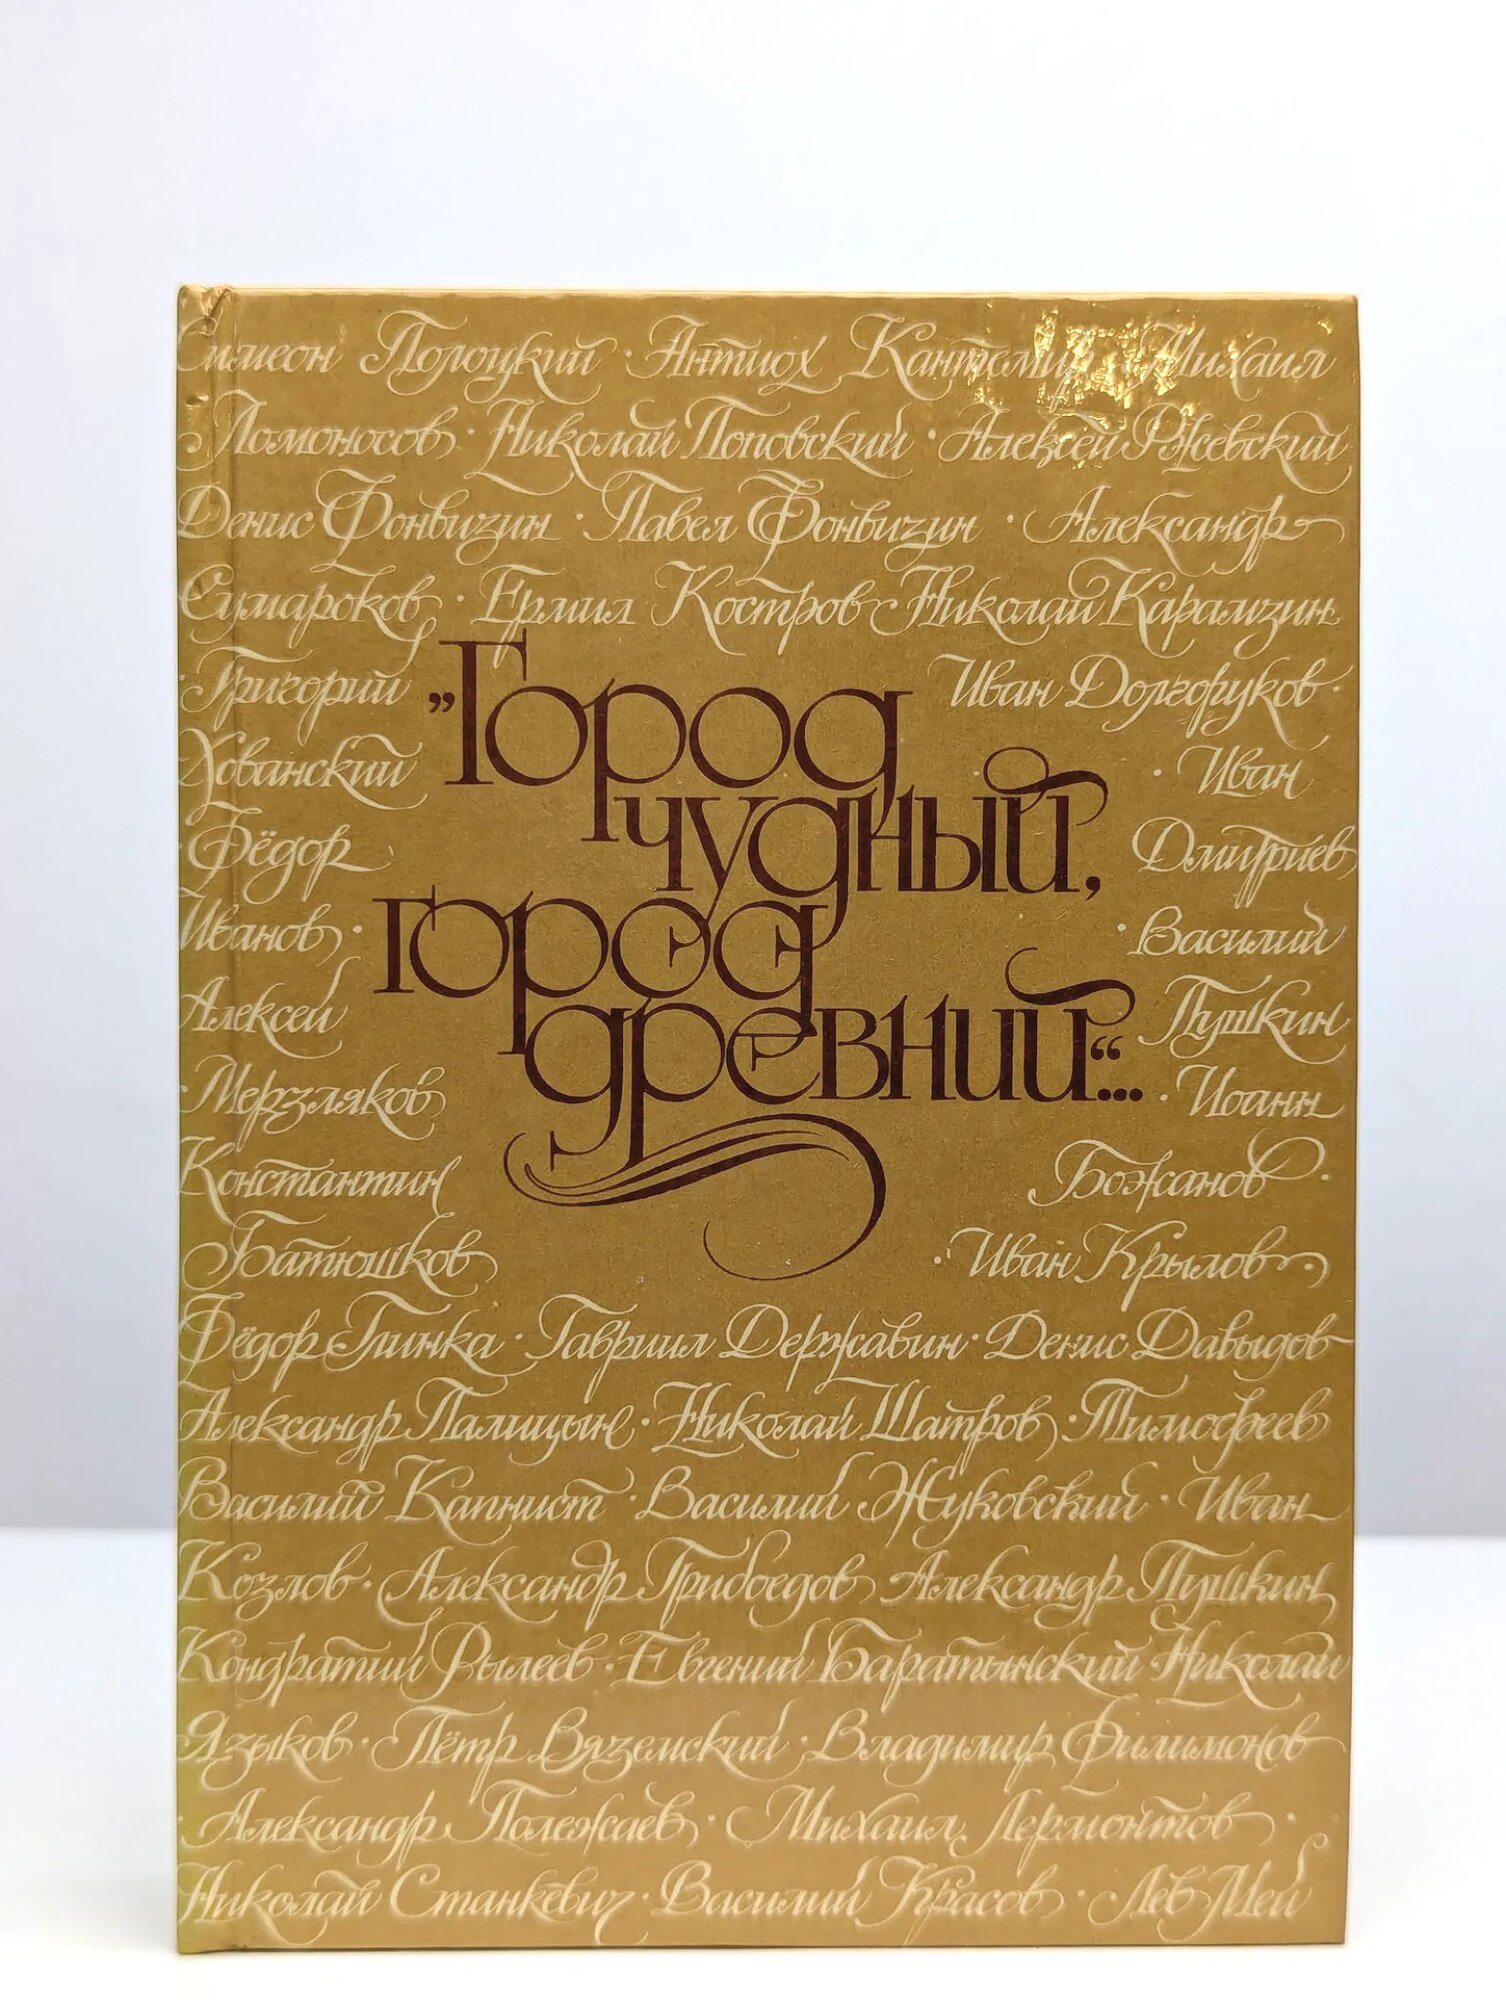 Симеон Полоцкий · Антиох Кантемир · Михаил
Ломоносов · Николай Поповский · Алексей Ржевский
Денис Фонвизин · Павел Фонвизин · Александр
Сумароков · Ермил Костров Николай Карамзин
· Григорий
Иван Долгоруков ·
Хованский
· Иван
· Фёдор
Дмитриев
Иванов ·
· Василий
Алексей
Пушкин
· Мерзляков
· Иоанн
Константин
Божанов ·
Батюшков
· Иван Крылов ·
„Город
чудный,
город
древний“...
Фёдор Глинка · Гавриил Державин · Денис Давыдов
Александр Палицын · Николай Шатров · Тимофеев
Василий Капнист · Василий Жуковский · Иван
Козлов · Александр Грибоедов Александр Пушкин
Кондратий Рылеев · Евгений Баратынский Николай
Языков · Пётр Вяземский · Владимир Филимонов
· Александр Полежаев · Михаил Лермонтов ·
Николай Станкевич · Василий Красов · Лев Мей